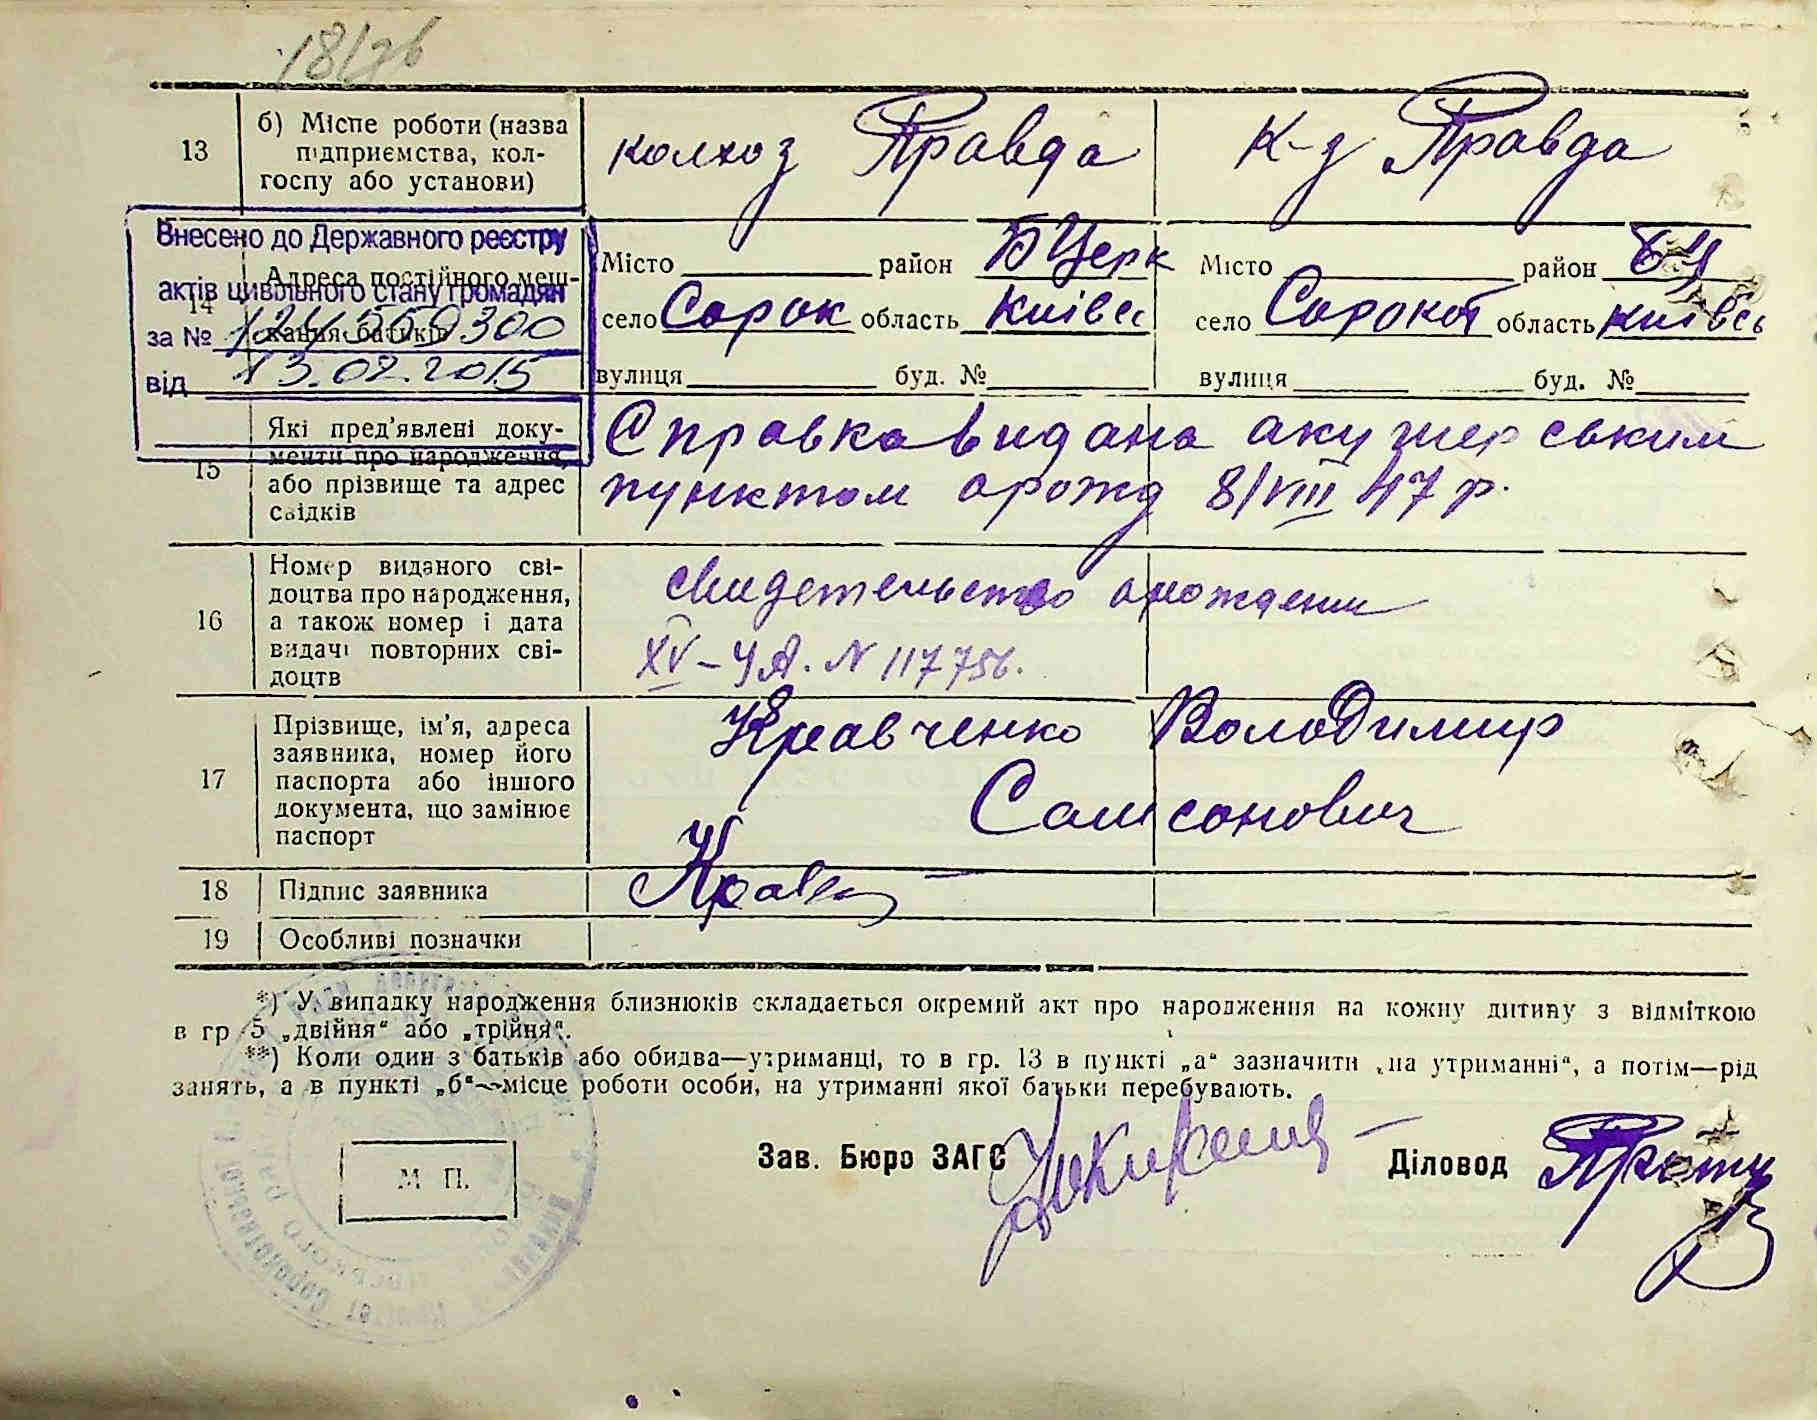 18/зв
13
б) Місце роботи (назва
підприємства, кол-
госпу або установи)
колхоз Правда
К-з Правда
Внесено до Державного реєстру
актів цивільного стану громадян
за №
від 13.02.2015
14
Адреса постійного меш-
кання батьків
Місто район БЦерк
село Сорок область Київсь
вулиця буд. №
Місто район БЦ
село Сорокот область Київсь
вулиця буд. №
15
Які пред'явлені доку-
менти про народження,
або прізвище та адрес
свідків
Справка видана акушерським
пунктом о рожд 8/VIII 47 р.
16
Номер виданого сві-
доцтва про народження,
а також номер і дата
видачі повторних сві-
доцтв
Свидетельство о рождении
XV-УА. N 117756.
17
Прізвище, ім'я, адреса
заявника, номер його
паспорта або іншого
документа, що замінює
паспорт
Кравченко Володимир
Самсонович
18
Підпис заявника
Крав
19
Особливі позначки
*) У випадку народження близнюків складається окремий акт про народження на кожну дитину з відміткою
в гр 5 „двійня“ або „трійня“.
**) Коли один з батьків або обидва—утриманці, то в гр. 13 в пункті „а“ зазначити „на утриманні“, а потім—рід
занять, а в пункті „б“—місце роботи особи, на утриманні якої батьки перебувають.
М П.
Зав. Бюро ЗАГС
Діловод